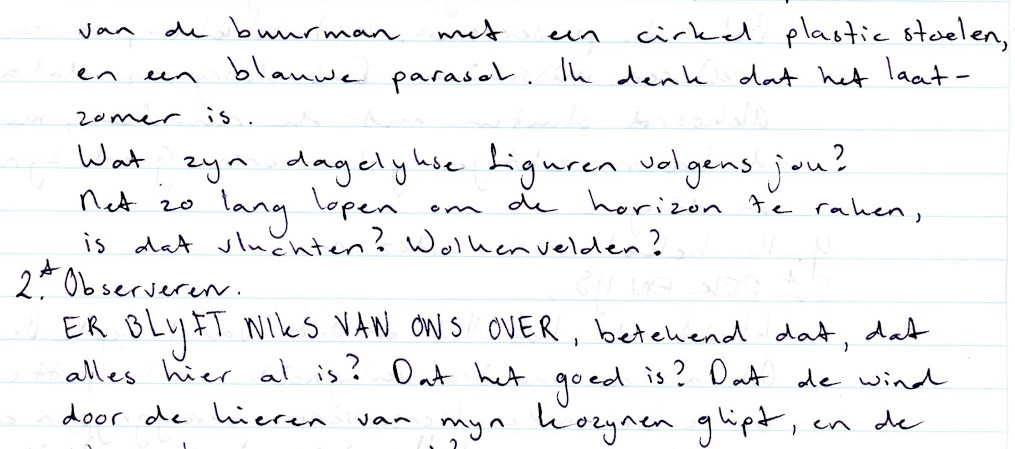 van de buurman met een cirkel plastic stoelen,
en een blauwe parasol. Ik denk dat het laat-
zomer is.
Wat zyn dagelykse figuren volgens jou?
Net zo lang lopen om de horizon te raken,
is dat vluchten? Wolkenvelden?
2.A Observeren.
ER BLyFT NIKS VAN ONS OVER, betekend dat, dat
alles hier al is? Dat het goed is? Dat de wind
door de kieren van myn kozynen glipt, en de